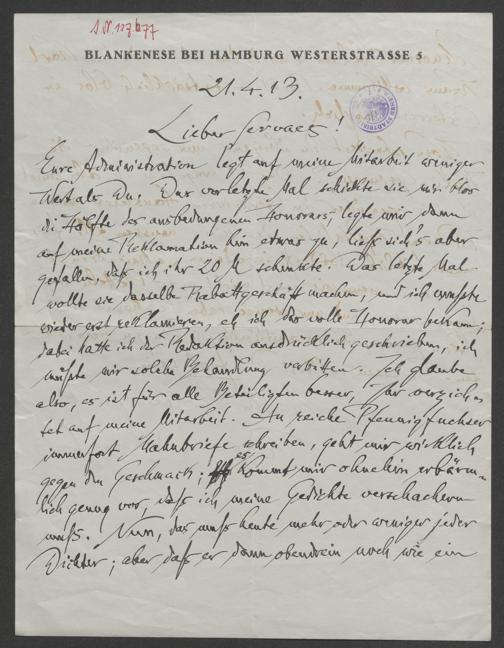 BLANKENESE BEI HAMBURG WESTERSTRASSE 5
21.4.13.
Lieber Servaes!
Eure Administration legt auf meine Mitarbeit weniger
Wert als Du. Das vorletzte Mal schickte sie mir blos
die Hälfte des ausbedungenen Honorars, legte mir dann
auf meine Reklamation hin etwas zu, ließ sich's aber
gefallen, daß ich ihr 20 M schenkte. Das letzte Mal
wollte sie dasselbe Rabattgeschäft machen, und ich mußte
wieder erst reklamieren, eh ich das volle Honorar bekam;
dabei hatte ich der Redaktion ausdrücklich geschrieben, ich
müßte mir solche Behandlung verbitten. Ich glaube
also, es ist für alle Beteiligten besser, Ihr verzich-
tet auf meine Mitarbeit. An reiche Pfennigfuchser
immerfort Mahnbriefe schreiben, geht mir wirklich
gegen den Geschmack; es kommt mir ohnehin erbärm-
lich genug vor, daß ich meine Gedichte verschachern
muß. Nun, das muß heute mehr oder weniger jeder
Dichter; aber daß er dann obendrein noch wie ein